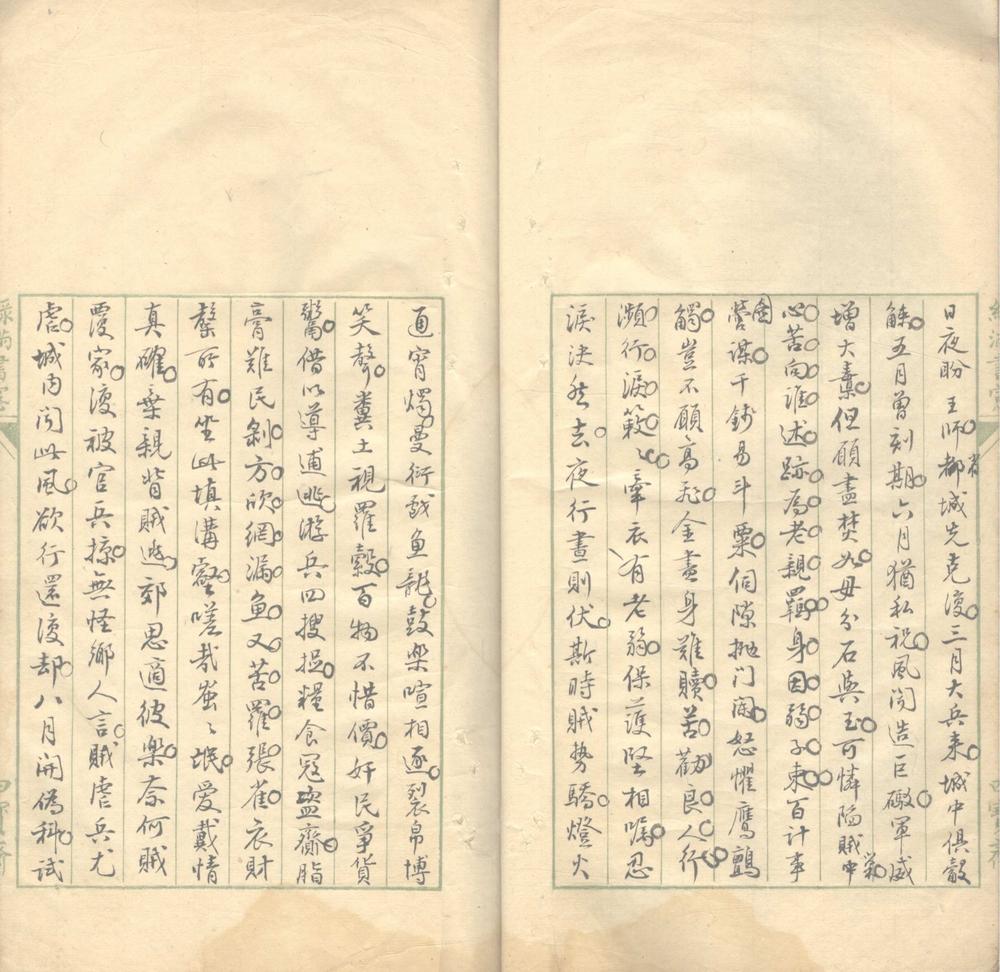 日夜盼王師都城先克復三月大兵来城中俱觳
觫五月曾刻期六月猶私祝風聞造巨礮軍威
增大纛但願盡焚如毋分石與玉可憐陷賊中
心苦向誰述跡為老親羈身因弱子束百計事
營謀千錢易斗粟伺隙抛门闥怒懼鷹鸇
觸豈不願高飛金盡身難贖苦勸良人行
瀕行淚簌簌牽衣有老弱保護堅相嘱忍
淚決然去夜行晝則伏斯時賊势驕燈火
通宵燭曼衍戲鱼龍鼓樂喧相逐裂帛博
笑聲糞土視羅縠百物不惜價奸民爭貨
鬻借以導逋逃游兵四搜捉糧食寇盗齎脂
膏難民剝方欣網漏鱼又苦羅張雀衣財
罄所有坐此填溝壑嗟哉蚩〻氓愛戴情
真確棄親背賊逃郊思適彼樂奈何賊
覆家復被官兵掠無怪鄉人言賊虐兵尤
虐城内聞此風欲行還復却八月開偽科試